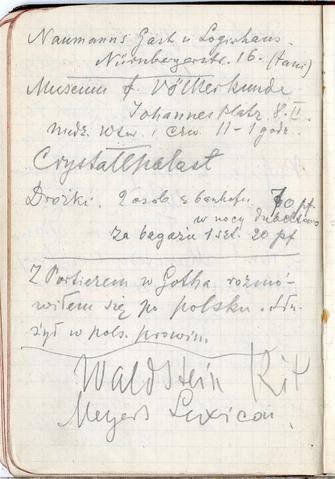 Naumanns Gast u Logirhaus.
Nürnbergerstr. 16. (tani)
Museum f. Völkerkunde
Johannes platz. 8. II.
niedz. wtor. i czw. 11-1 godz.
Crystallpalast
Drożki. 2 osob z banhofu 70 pf
w nocy dubeltowo
za bagażu 1 szt. 20 pf
Z Portierem w Gotha rozmó-
wiłem się po polsku. Słu-
żył w pols. prowin.
Waldstein Kit
Meyers Lexicon.